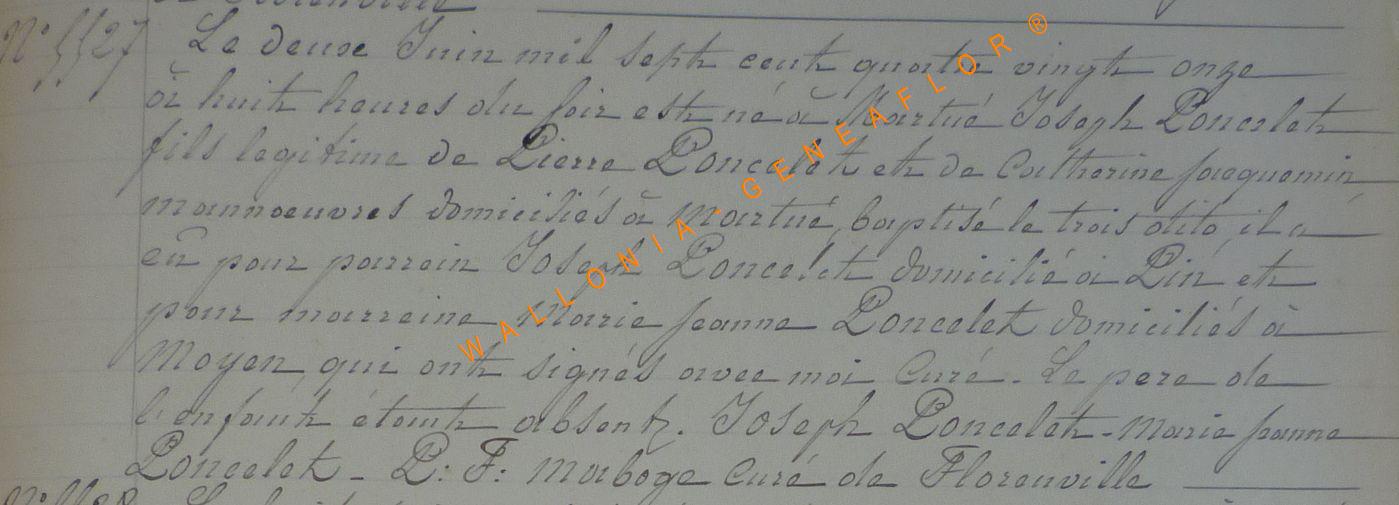 de Florenville
N° 1127 Le deux Juin mil sept cent quatre vingt onze
à huit heures du soir est né à Martué Joseph Poncelet
fils legitime de Pierre Poncelet et de Catherine Jacquemin
mannoeuvres domiciliés à Martué, baptisé le trois dito, il a
eû pour parrain Joseph Poncelet domicilié à Pin et
pour marreine Marie Jeanne Poncelet domiciliés à
Moyen, qui ont signés avec moi Curé. Le pere de
l'enfant étant absent. Joseph Poncelet - Marie Jeanne
Poncelet - P: F: Maboge Curé de Florenville
WALLONIA - GENEAFLOR ®